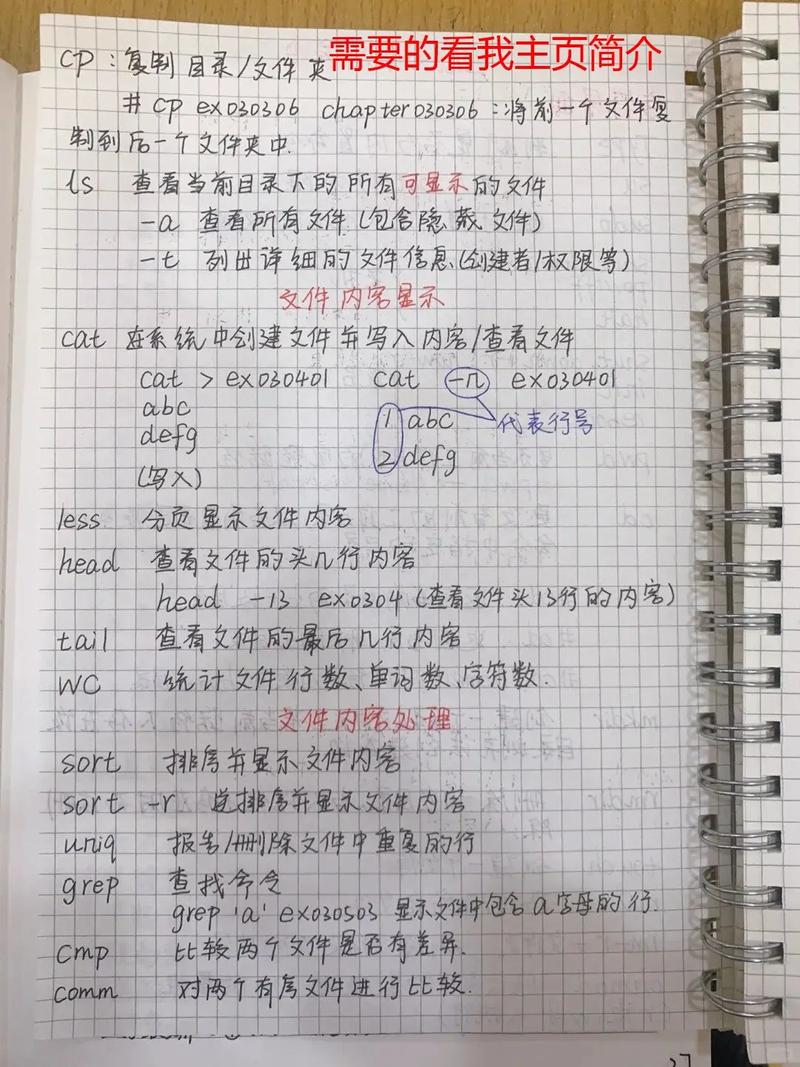 需要的看我主页简介
cp：复制目录/文件夹
# cp ex030306 chapter030306：将前一个文件复
制到后一个文件夹中.
ls 查看当前目录下的所有可显示的文件
-a 查看所有文件(包含隐藏文件)
-t 列出详细的文件信息(创建者/权限等)
文件内容显示
cat 在系统中创建文件并写入内容/查看文件
cat > ex030401 cat -n ex030401
abc 1 abc 代表行号
defg 2 defg
(写入)
less 分页显示文件内容
head 查看文件的头几行内容
head -13 ex0304 (查看文件头13行的内容)
tail 查看文件的最后几行内容
WC 统计文件行数、单词数、字符数.
文件内容处理
sort 排序并显示文件内容
sort -r 逆排序并显示文件内容
uniq 报告/删除文件中重复的行
grep 查找命令
grep 'a' ex030503 显示文件中包含a字母的行.
cmp 比较两个文件是否有差异.
comm 对两个有序文件进行比较.